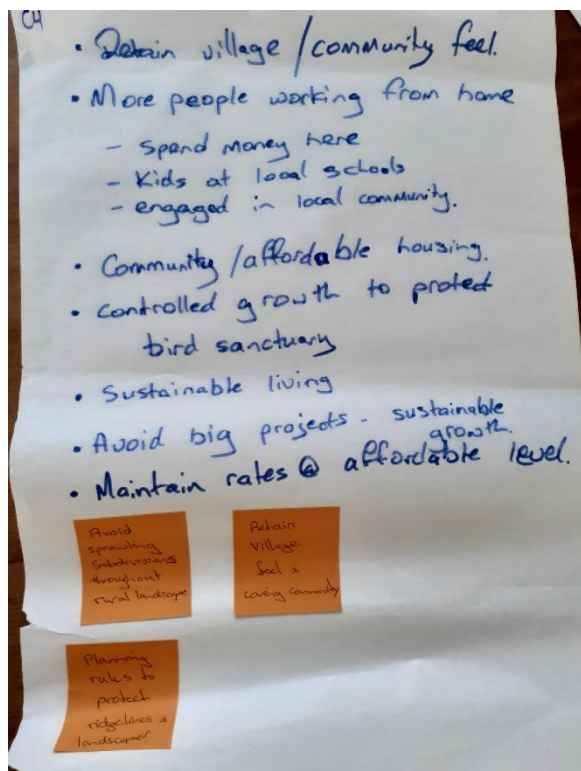 C4
• Retain village / community feel.
• More people working from home
- Spend money here
- Kids at local schools
- engaged in local community.
• Community / affordable housing.
• Controlled growth to protect
bird sanctuary
• Sustainable living
• Avoid big projects - sustainable
growth.
• Maintain rates @ affordable level.
Avoid
sprawling
subdivisions
throughout
rural landscape
Retain
Village
feel &
caring community
Planning
rules to
protect
ridgelines &
landscapes